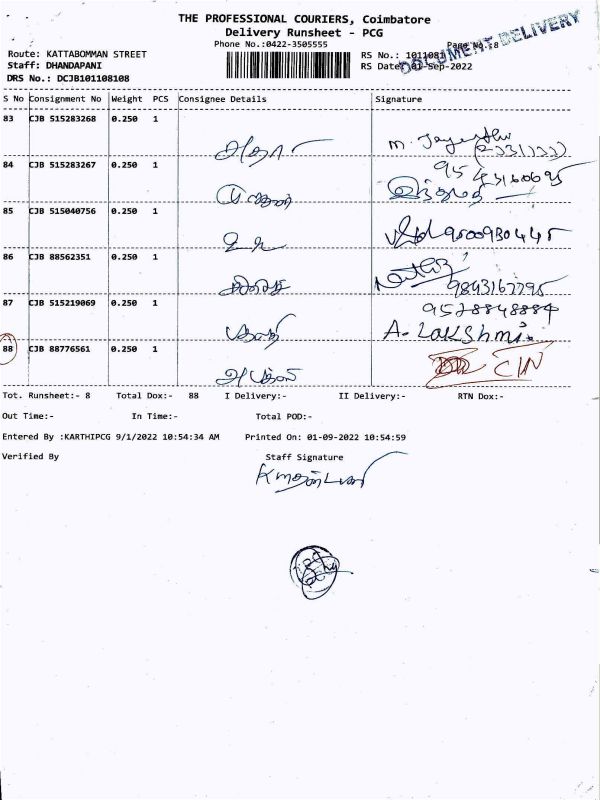 THE PROFESSIONAL COURIERS, Coimbatore
Delivery Runsheet - PCG
Phone No.:0422-3505555
Page No.:8
DOCUMENT DELIVERY
Route: KATTABOMMAN STREET
RS No.: 1011081
Staff: DHANDAPANI
RS Date: 01-Sep-2022
DRS No.: DCJB101108108
S No Consignment No Weight PCS Consignee Details Signature
83 CJB 515283268 0.250 1
84 CJB 515283267 0.250 1
85 CJB 515040756 0.250 1 9500930445
86 CJB 88562351 0.250 1 9843167795
87 CJB 515219069 0.250 1 9578848884
A. LAKShmi
88 CJB 88776561 0.250 1 CIN
Tot. Runsheet:- 8 Total Dox:- 88 I Delivery:- II Delivery:- RTN Dox:-
Out Time:- In Time:- Total POD:-
Entered By :KARTHIPCG 9/1/2022 10:54:34 AM Printed On: 01-09-2022 10:54:59
Verified By Staff Signature